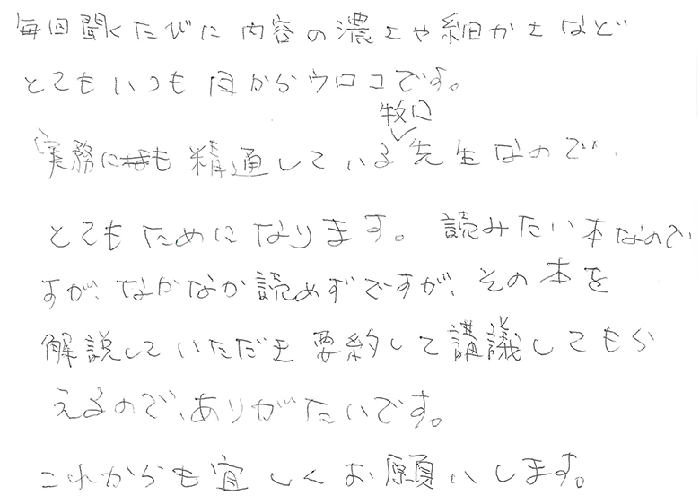 毎回聞くたびに内容の濃さや細かさなど
とてもいつも目からウロコです。
実務にも精通している牧口先生なので、
とてもためになります。読みたい本なので
すが、なかなか読めずですが、その本を
解説していただき要約して講議してもら
えるので、ありがたいです。
これからも宜しくお願いします。